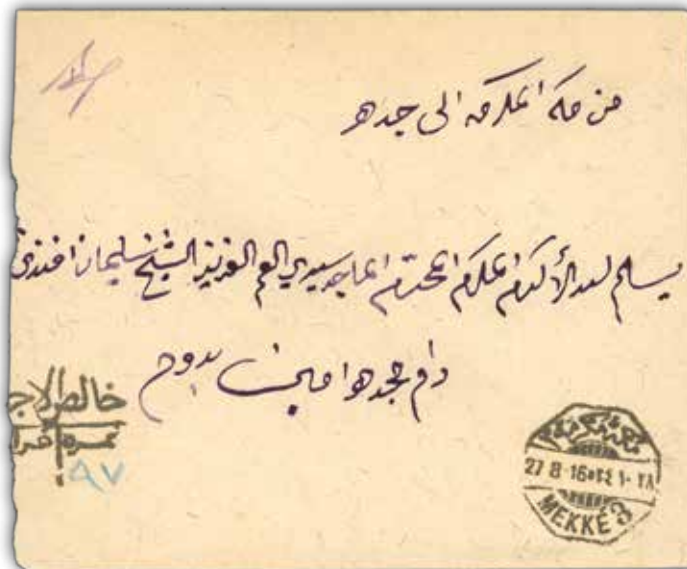 من مكة المكرمه الى جده
يسلم ليد الأكرم المكرم المحترم الماجد سيدي العم العزيز الشيخ سليمان افندي
دام مجده امين بدوح
خالص الاج
٩٧
27 8 16
MEKKÉ 3